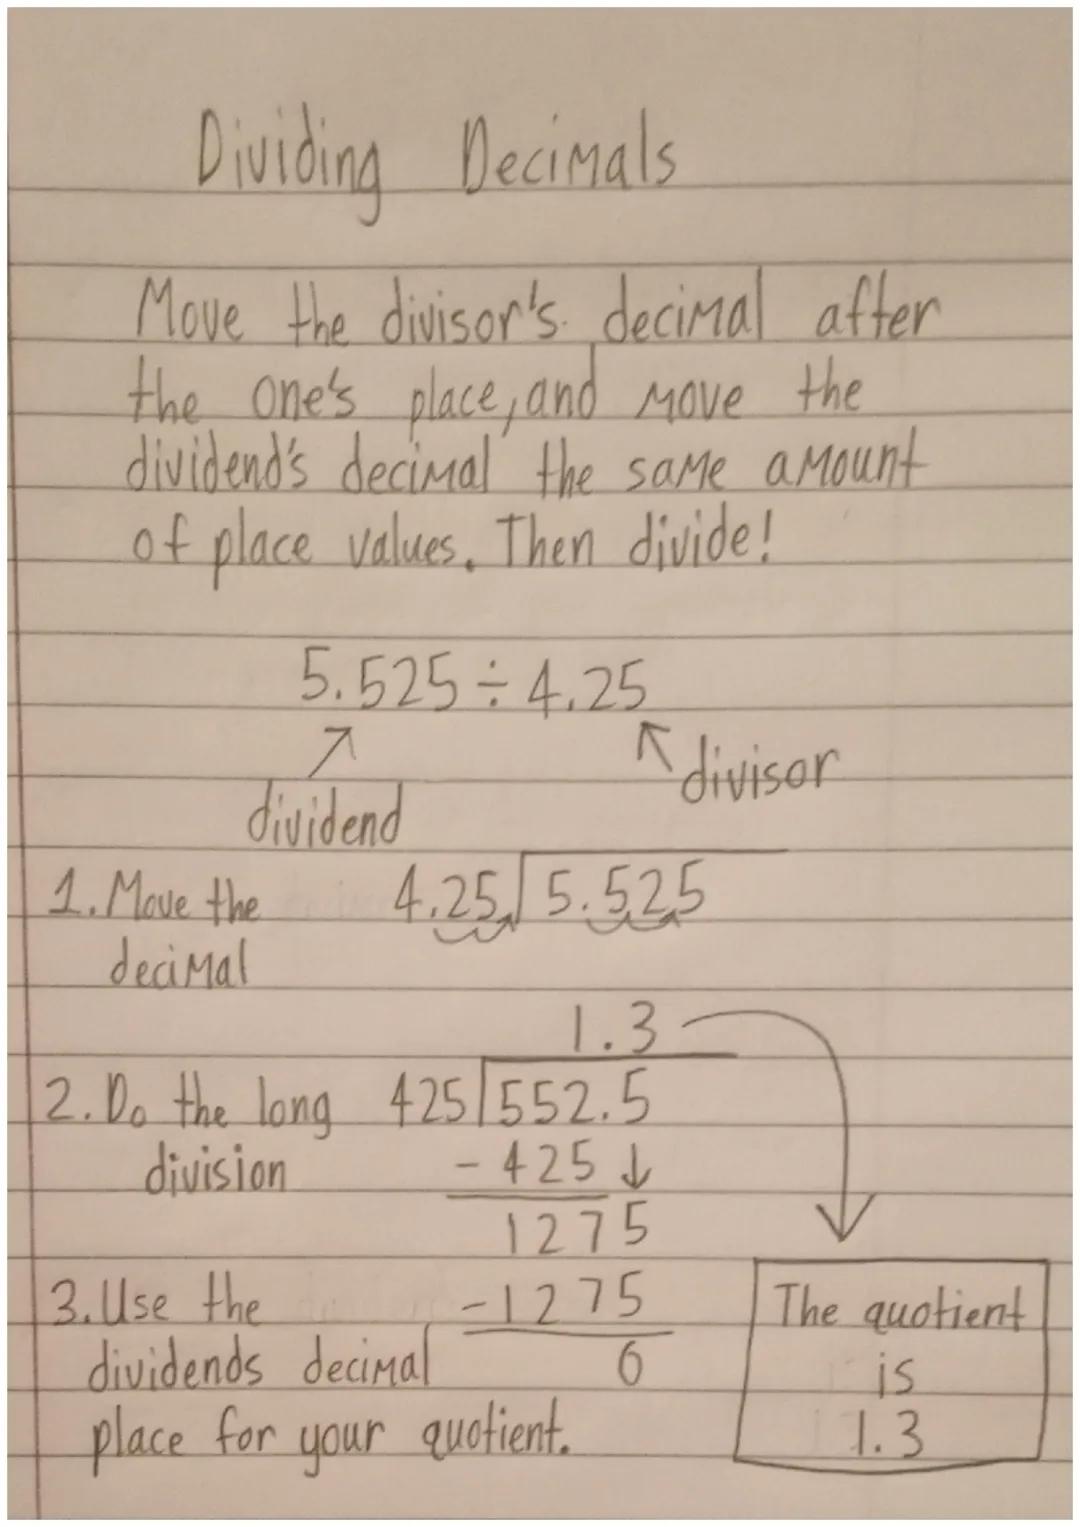 Dividing Decimals
Move the divisor's decimal after
the one's place, and move the
dividend's decimal the same amount
of place values. Then divide!
5.525 ÷ 4.25
dividend
divisor
1. Move the
decimal
4.25 5.525
1.3
2. Do the long
division
425 552.5
- 425 ↓
1275
-1275
0
3. Use the
dividends decimal
place for your quotient.
The quotient
is
1.3